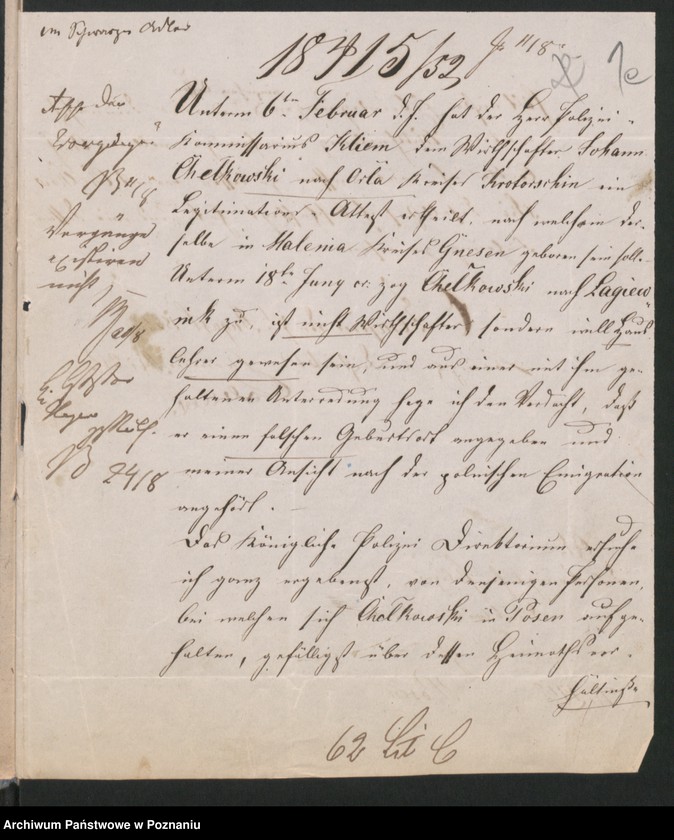 im Schwarzen Adler
18415/52
11/8
Unterm 6ten Februar d. J. hat der Herr Polizei-
Kommissarius Kliem dem Wirthschafter Johann
Chełkowski nach Orla Kreises Krotoschin ein
Legitimations-Attest ertheilt, nach welchem der-
selbe in Malenia Kreises Gnesen geboren sein soll.
Unterm 18ten Juny cr. zog Chełkowski nach Lagiew
nik zu, ist nicht Wirthschafter, sondern will Haus
lehrer gewesen sein, und aus einer mit ihm ge-
haltenen Unterredung hege ich den Verdacht, daß
er einen falschen Geburtsort angegeben und
meiner Ansicht nach der polnischen Emigration
angehört.
Das Königliche Polizei Direktorium ersuche
ich ganz ergebenst, von denjenigen Personen,
bei welchen sich Chełkowski in Posen aufge-
halten, gefälligst über dessen Heimathsver-
hältniße
Vorgänge
existiren
nicht
24/8
62 Lit C
Archiwum Państwowe w Poznaniu